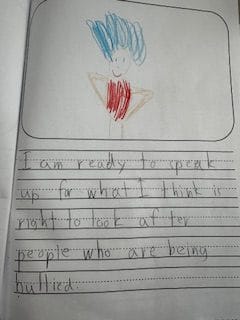 I am ready to speak
up for what I think is
right to look after
people who are being
bullied.